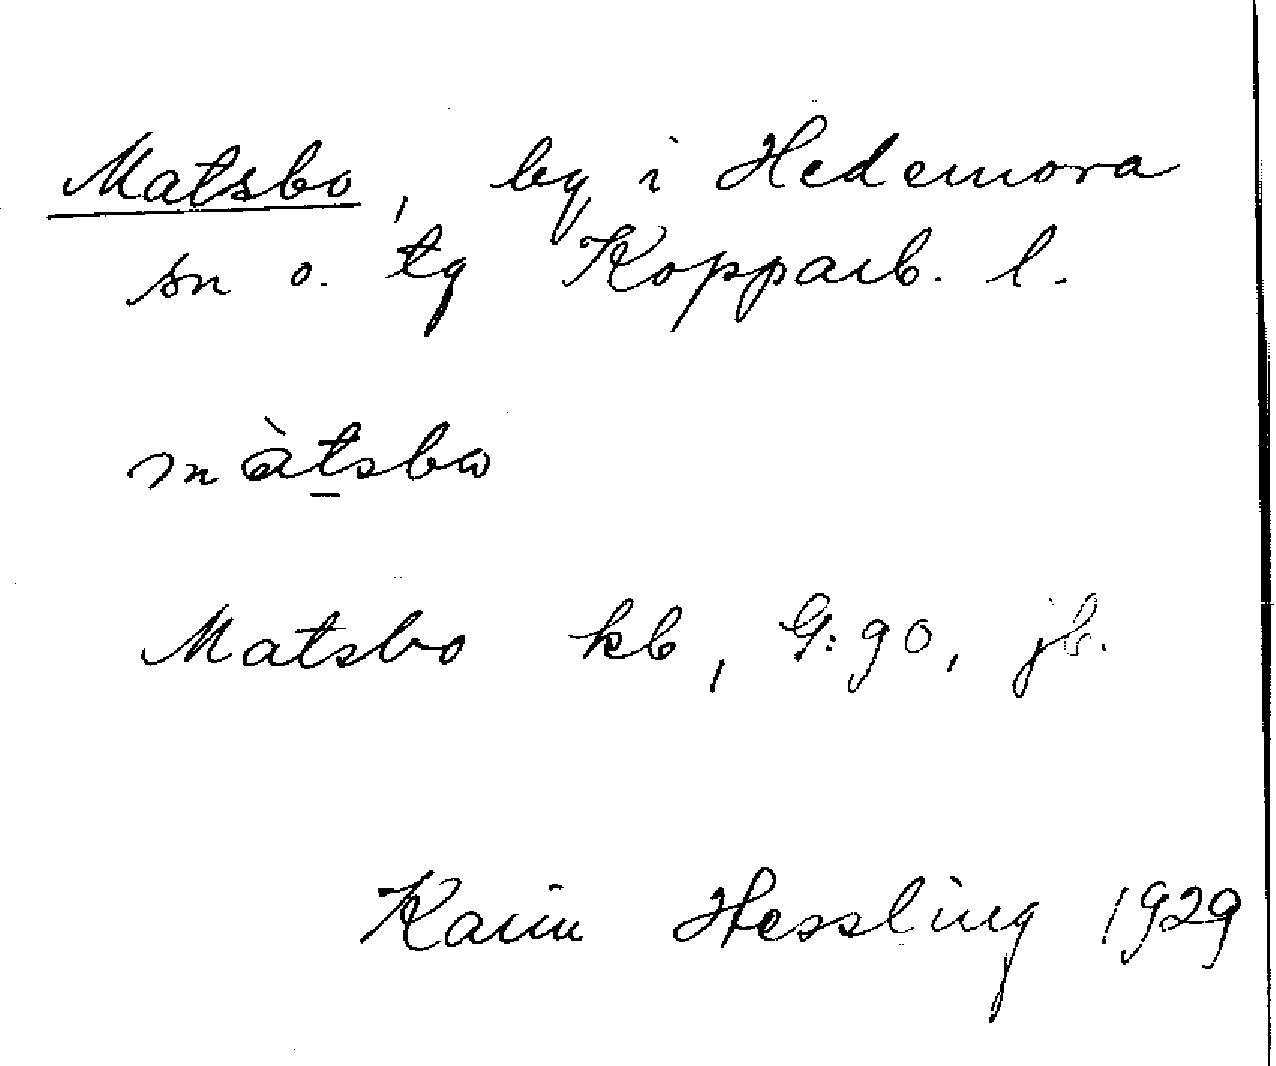 Matsbo, by i Hedemora
sn o. tg Kopparb. l.
màt̲sbω
Matsbo kb, G:90, jb.
Karin Hessling 1929